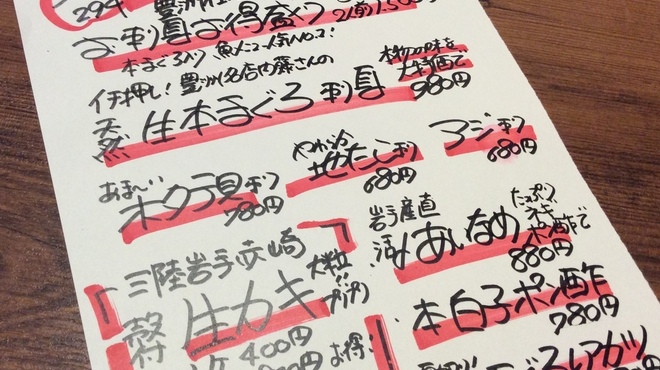 294
豊洲
お刺身お得盛り 2人前1,500円
本まぐろ入り 魚人ニュー人気No.2!
イチ押し! 豊洲名店内藤さんの
本物の味を、大特価で
天然 生本まぐろ刺身 980円
やわらか 地たこ刺 680円
アジ刺 680円
あま〜い ホタテ貝刺 780円
岩手産直 活〆あいなめ
たっぷりネギポン酢で 880円
三陸岩手赤崎
殻付 生カキ
大粒!! プリプリ
400円
お得!
本白子ポン酢 780円